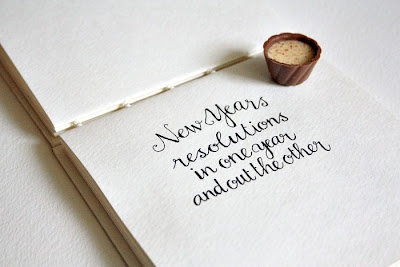 New Years
resolutions
in one year
and out the other